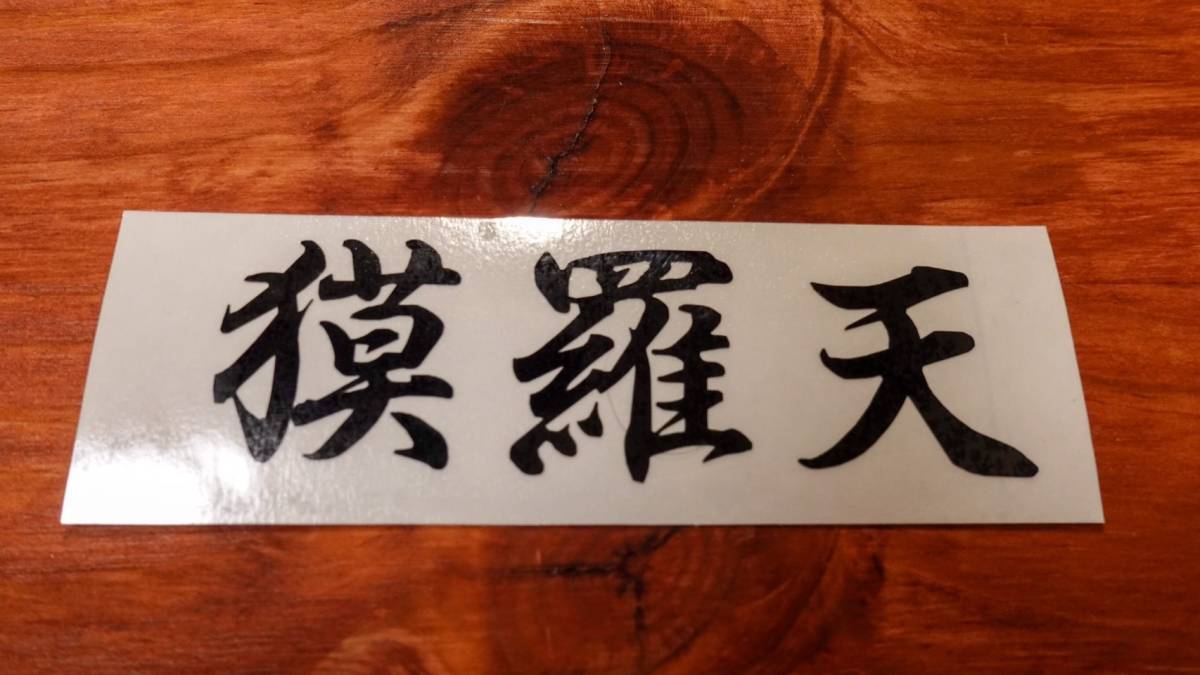 獏羅天